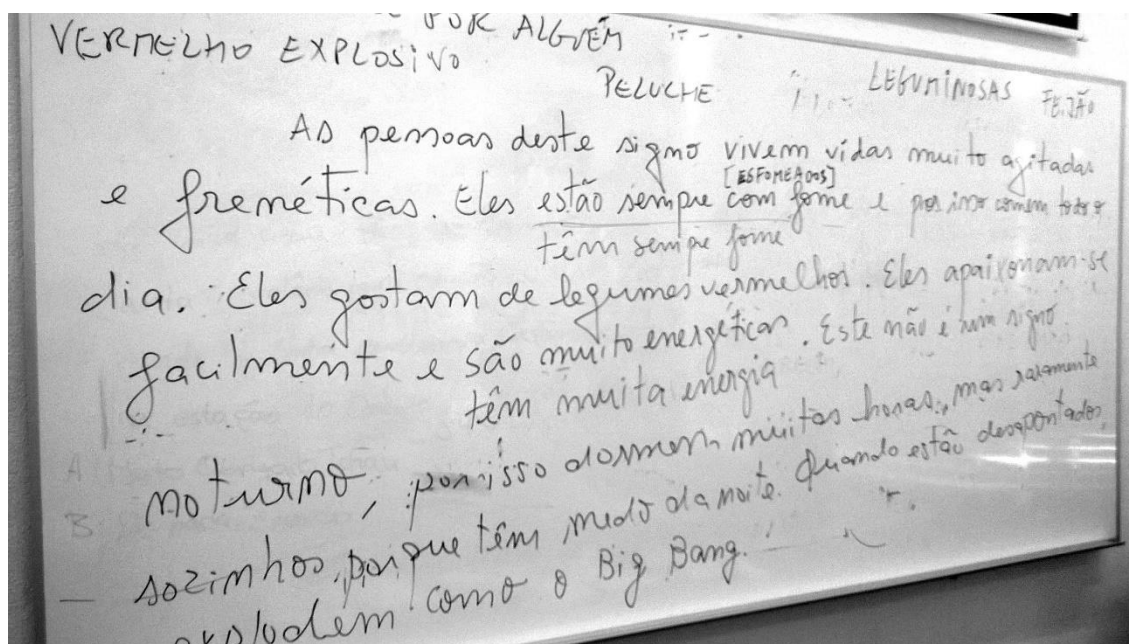 POR ALGUÉM
VERMELHO EXPLOSIVO
PELUCHE LEGUMINOSAS FEIJÃO
As pessoas deste signo vivem vidas muito agitadas
[ESFOMEADOS]
e frenéticas. Eles estão sempre com fome e por isso comem todo o
têm sempre fome
dia. Eles gostam de legumes vermelhos. Eles apaixonam-se
facilmente e são muito energéticas. Este não é um signo
têm muita energia
noturno, por isso dormem muitas horas, mas raramente
sozinhos, porque têm medo da noite. Quando estão desapontados,
explodem como o Big Bang.